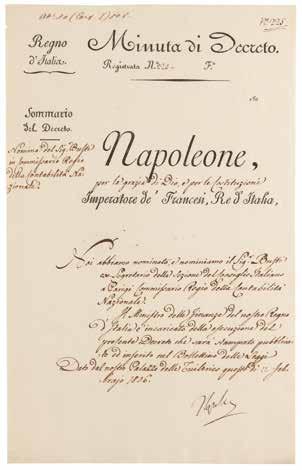 Nº 225.
Regno
d'Italia.
Minuta di Decreto.
Registrata Nº F.º
Sommario
del Decreto.
Nomina del Sig. Busti
in Commissario Regio
della Contabilità Na-
zionale.
Napoleone,
per la grazia di Dio, e per le Costituzioni
Imperatore de' Francesi, Re d'Italia,
Noi abbiamo nominato, e nominiamo il Sig. Busti
Segretario della Sezione del Consiglio Italiano
a Parigi Commissario Regio della Contabilità
Nazionale.
Il Ministro delle Finanze del nostro Regno
d'Italia è incaricato della esecuzione del
presente Decreto che sarà stampato pubblica-
to ed inserito nel Bollettino delle Leggi
Dato dal nostro Palazzo delle Tuileries questo dì 12 feb.
brajo 1806.